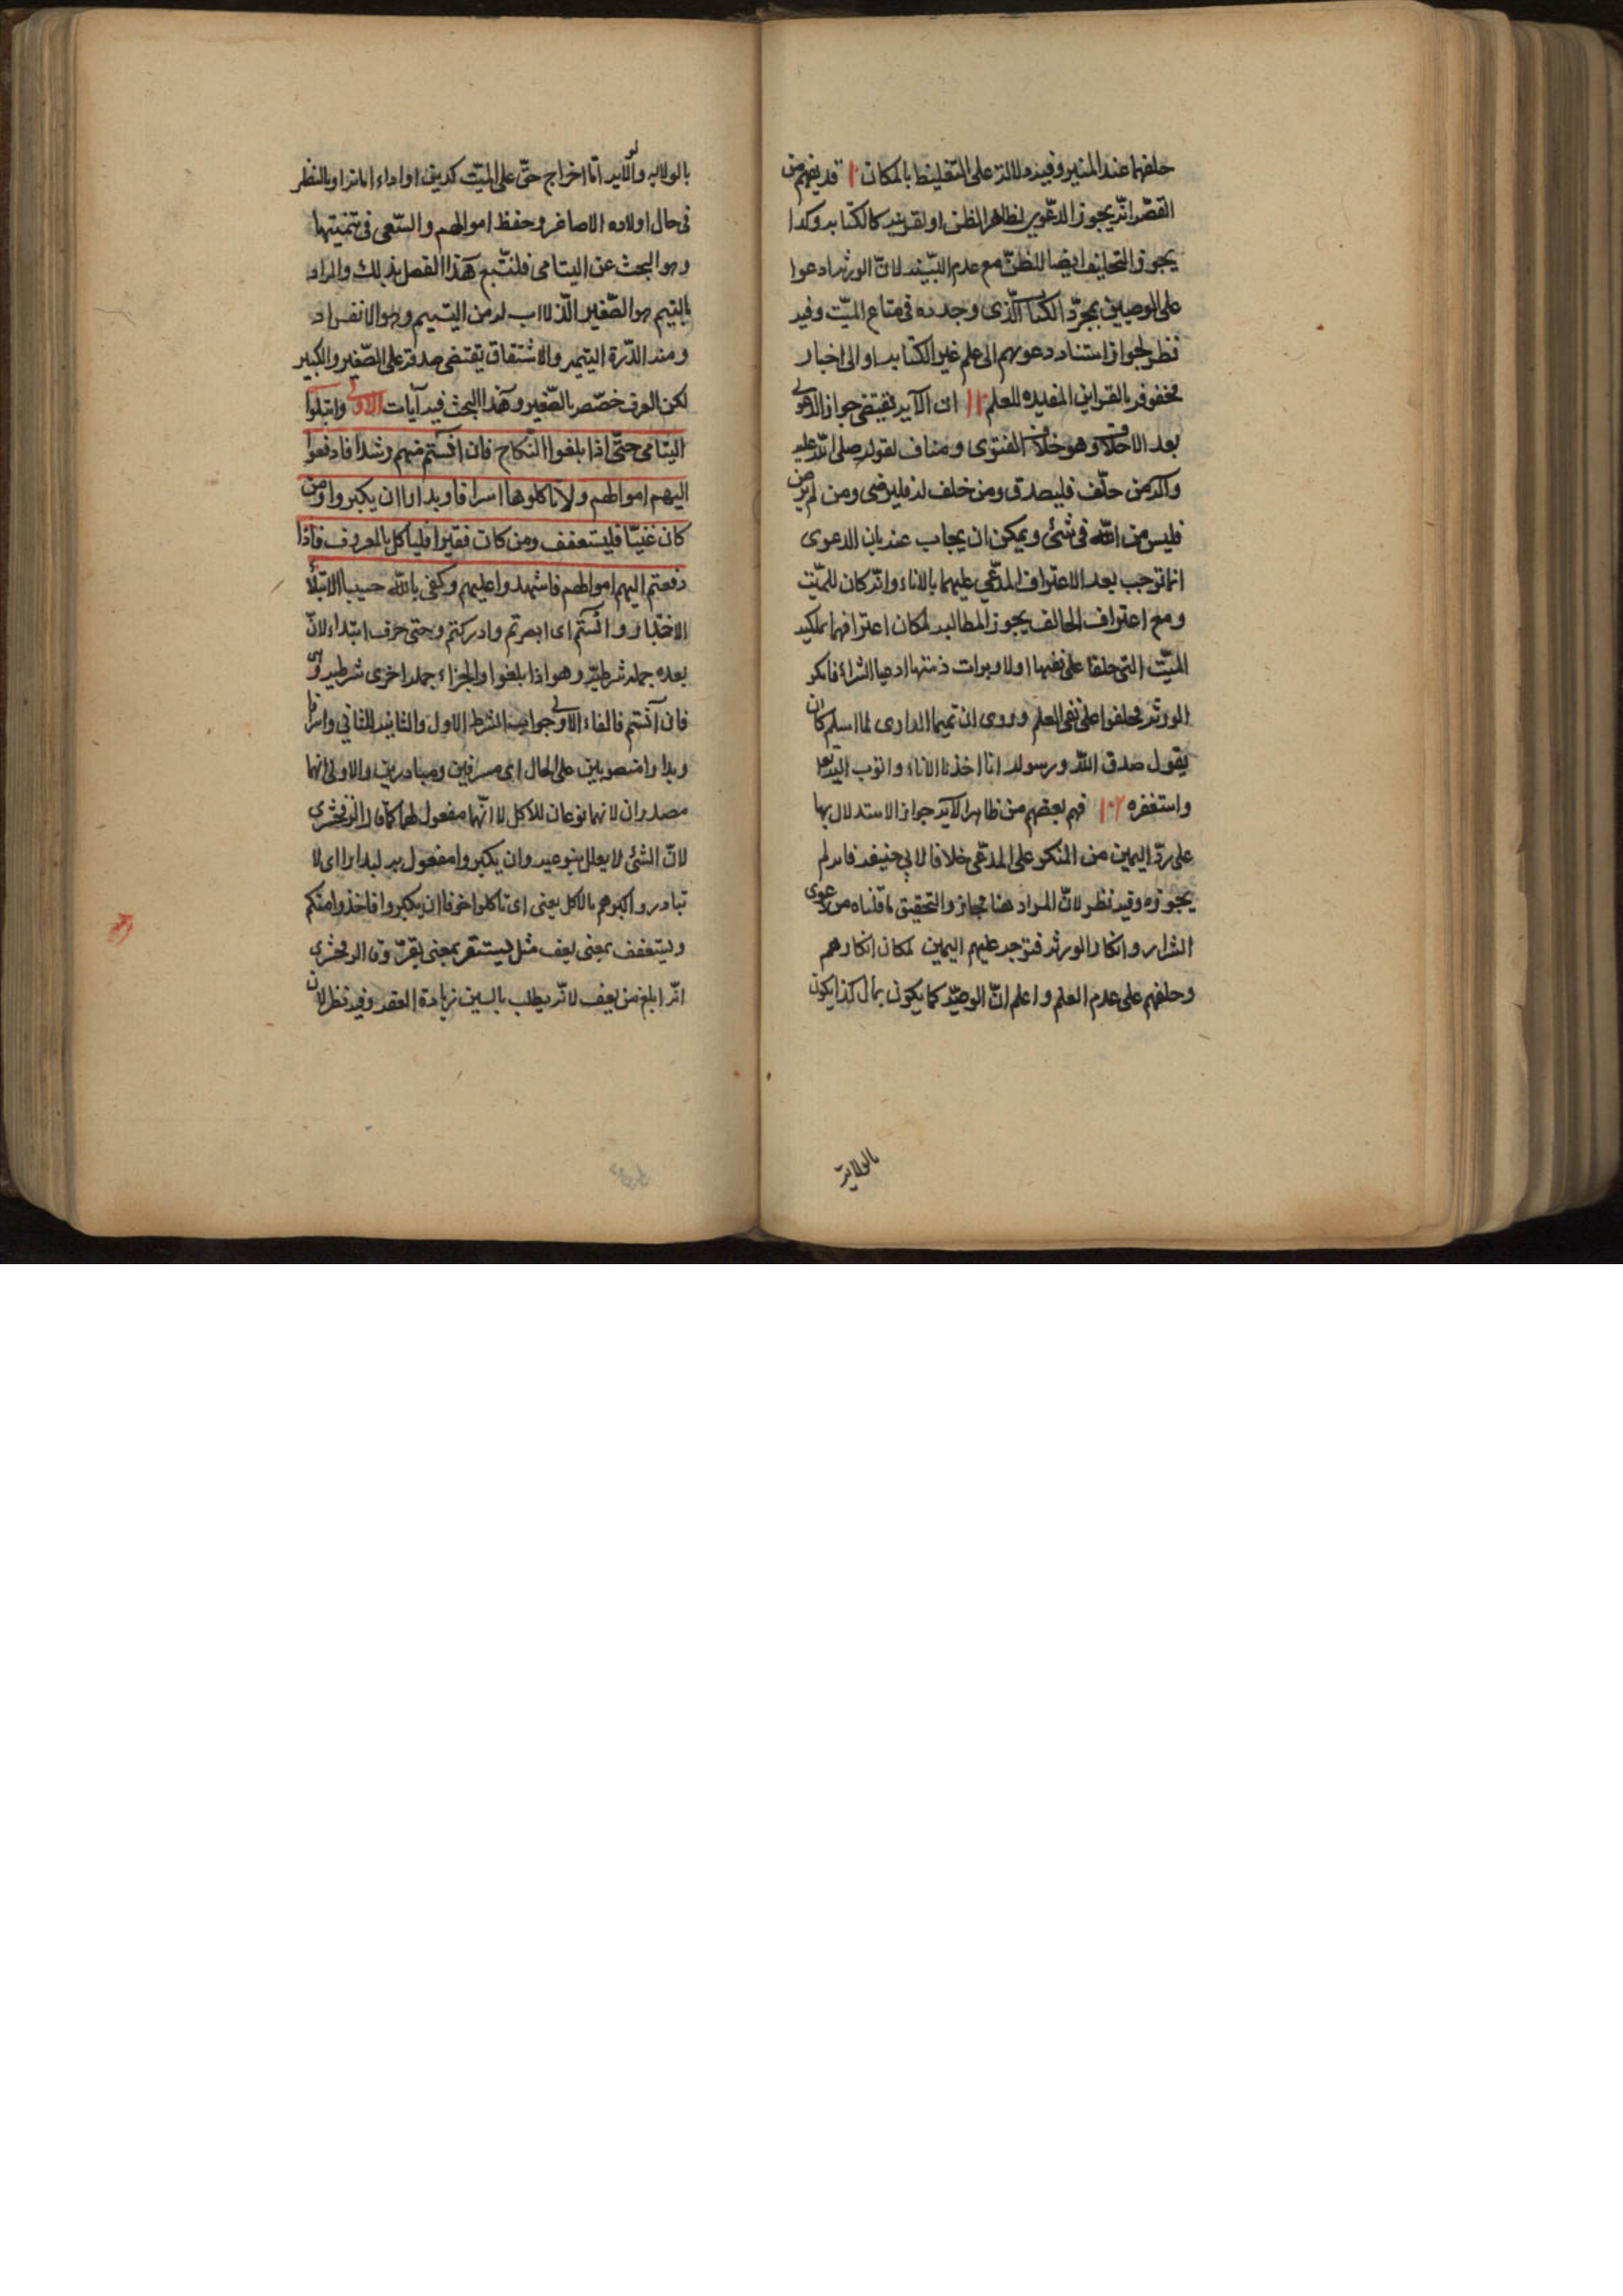 حلفهما عند المنبر وفيه دلالة على التغليظ بالمكان ١٠ قد يفهم من
القصّة انّه يجوز الدعوى لظاهر الظن او لقرينه كالكتابه وكذا
يجوز التحليف ايضا للظنّ مع عدم البيّنه لانّ الورثه ادعوا
على الوصيين بمجرّد الكتاب الّذى وجدوه فى متاع الميّت وفيه
نظر لجواز استناد دعويهم الى علم غير الكتابه او الى اخبار
محفوفة بالقراين المفيده للعلم ١١ ان الآيه تقتضى جواز الدعوى
بعد الاحلاف وهو خلاف الفتوى ومناف لقوله صلى الله عليه
وآله من حلّف فليصدق ومن حلف له فليرضى ومن لم يرض
فليس من الله فى شئ ويمكن ان يجاب عنه بان الدعوى
انما توجب بعد الاعتراف المدّعي عليهما بالاناء وانّه كان للميّت
ومع اعتراف الحالف يجوز المطالبه لمكان اعترافهما بملكيه
الميّت التى حلفا على نفيها اولا وبرات ذمتها ادعيا الشراء فانكر
الورثه فحلفوا على نفى العلم وروى ان تميما الدارى لما اسلم كان
يقول صدق الله ورسوله انا اخذنا الاناء واتوب اليه تعا
واستغفره ١٢ فهم بعضهم من ظاهر الآيه جواز الاستدلال بها
على ردّ اليمين من المنكر على المدّعى خلافا لابي حنيفه فانه لم
يجوزه وفيه نظر لانّ المراد هنا مجاز والتحقيق ما قلناه من دعوى
الشراء وانكار الورثه فتوجه عليهم اليمين لمكان انكارهم
وحلفهم على عدم العلم واعلم انّ الوصيّه كما يكون بمال كذا يكون
بالولاية
بالولايه والآيه امّا اخراج حقّ على الميّت كدين او اداء امانه او بالنظر
فى حال اولاده الاصاغر وحفظ اموالهم والسّعى فى تنميتها
وهو البحث عن اليتامى فلنتبع هذا الفصل بذلك والمراد
باليتيم هو الصّغير الّذ لا اب له من اليتيم وهو الانفراد
ومنه الدّرة اليتيمه والاشتقاق يقتضى صدقه على الصّغير والكبير
لكن العرف خصّصه بالصّغير وهذا البحث فيه آيات الاولى وابتلوا
اليتامى حتّى اذا بلغوا النّكاح فان آنستم منهم رشدا فادفعوا
اليهم اموالهم ولا تاكلوها اسرافا وبدارا ان يكبروا ومن
كان غنيّا فليستعفف ومن كان فقيرا فلياكل بالمعروف فاذا
دفعتم اليهم اموالهم فاشهدوا عليهم وكفى بالله حسيبا الابتلاء
الاختبار وآنستم اى ابصرتم وادركتم وحتى حرف ابتداء لانّ
بعده جمله شرطيّه وهو اذا بلغوا والجزاء جمله اخرى شرطيه وهى
فان آنستم فالفاء الاولى جواب الشرط الاول والثانيه للثاني واسرافا
وبدارا منصوبين على الحال اى مسرفين ومبادرين والاولى انهما
مصدران لانهما نوعان للاكل لا انّهما مفعول لهما كما قال الزمخشرى
لانّ الشئ لا يعلل بنوعيه وان يكبروا مفعول به لبدارا اى لا
تبادروا كبرهم بالاكل يعنى اى تاكلوا خوفا ان يكبروا فاخذوا منكم
وليستعفف بمعنى يعف مثل يستقر بمعنى يقرّ وقال الزمخشرى
انّه ابلغ من يعف لانّه يطلب بالسين زيادة العفه وفيه نظر لان